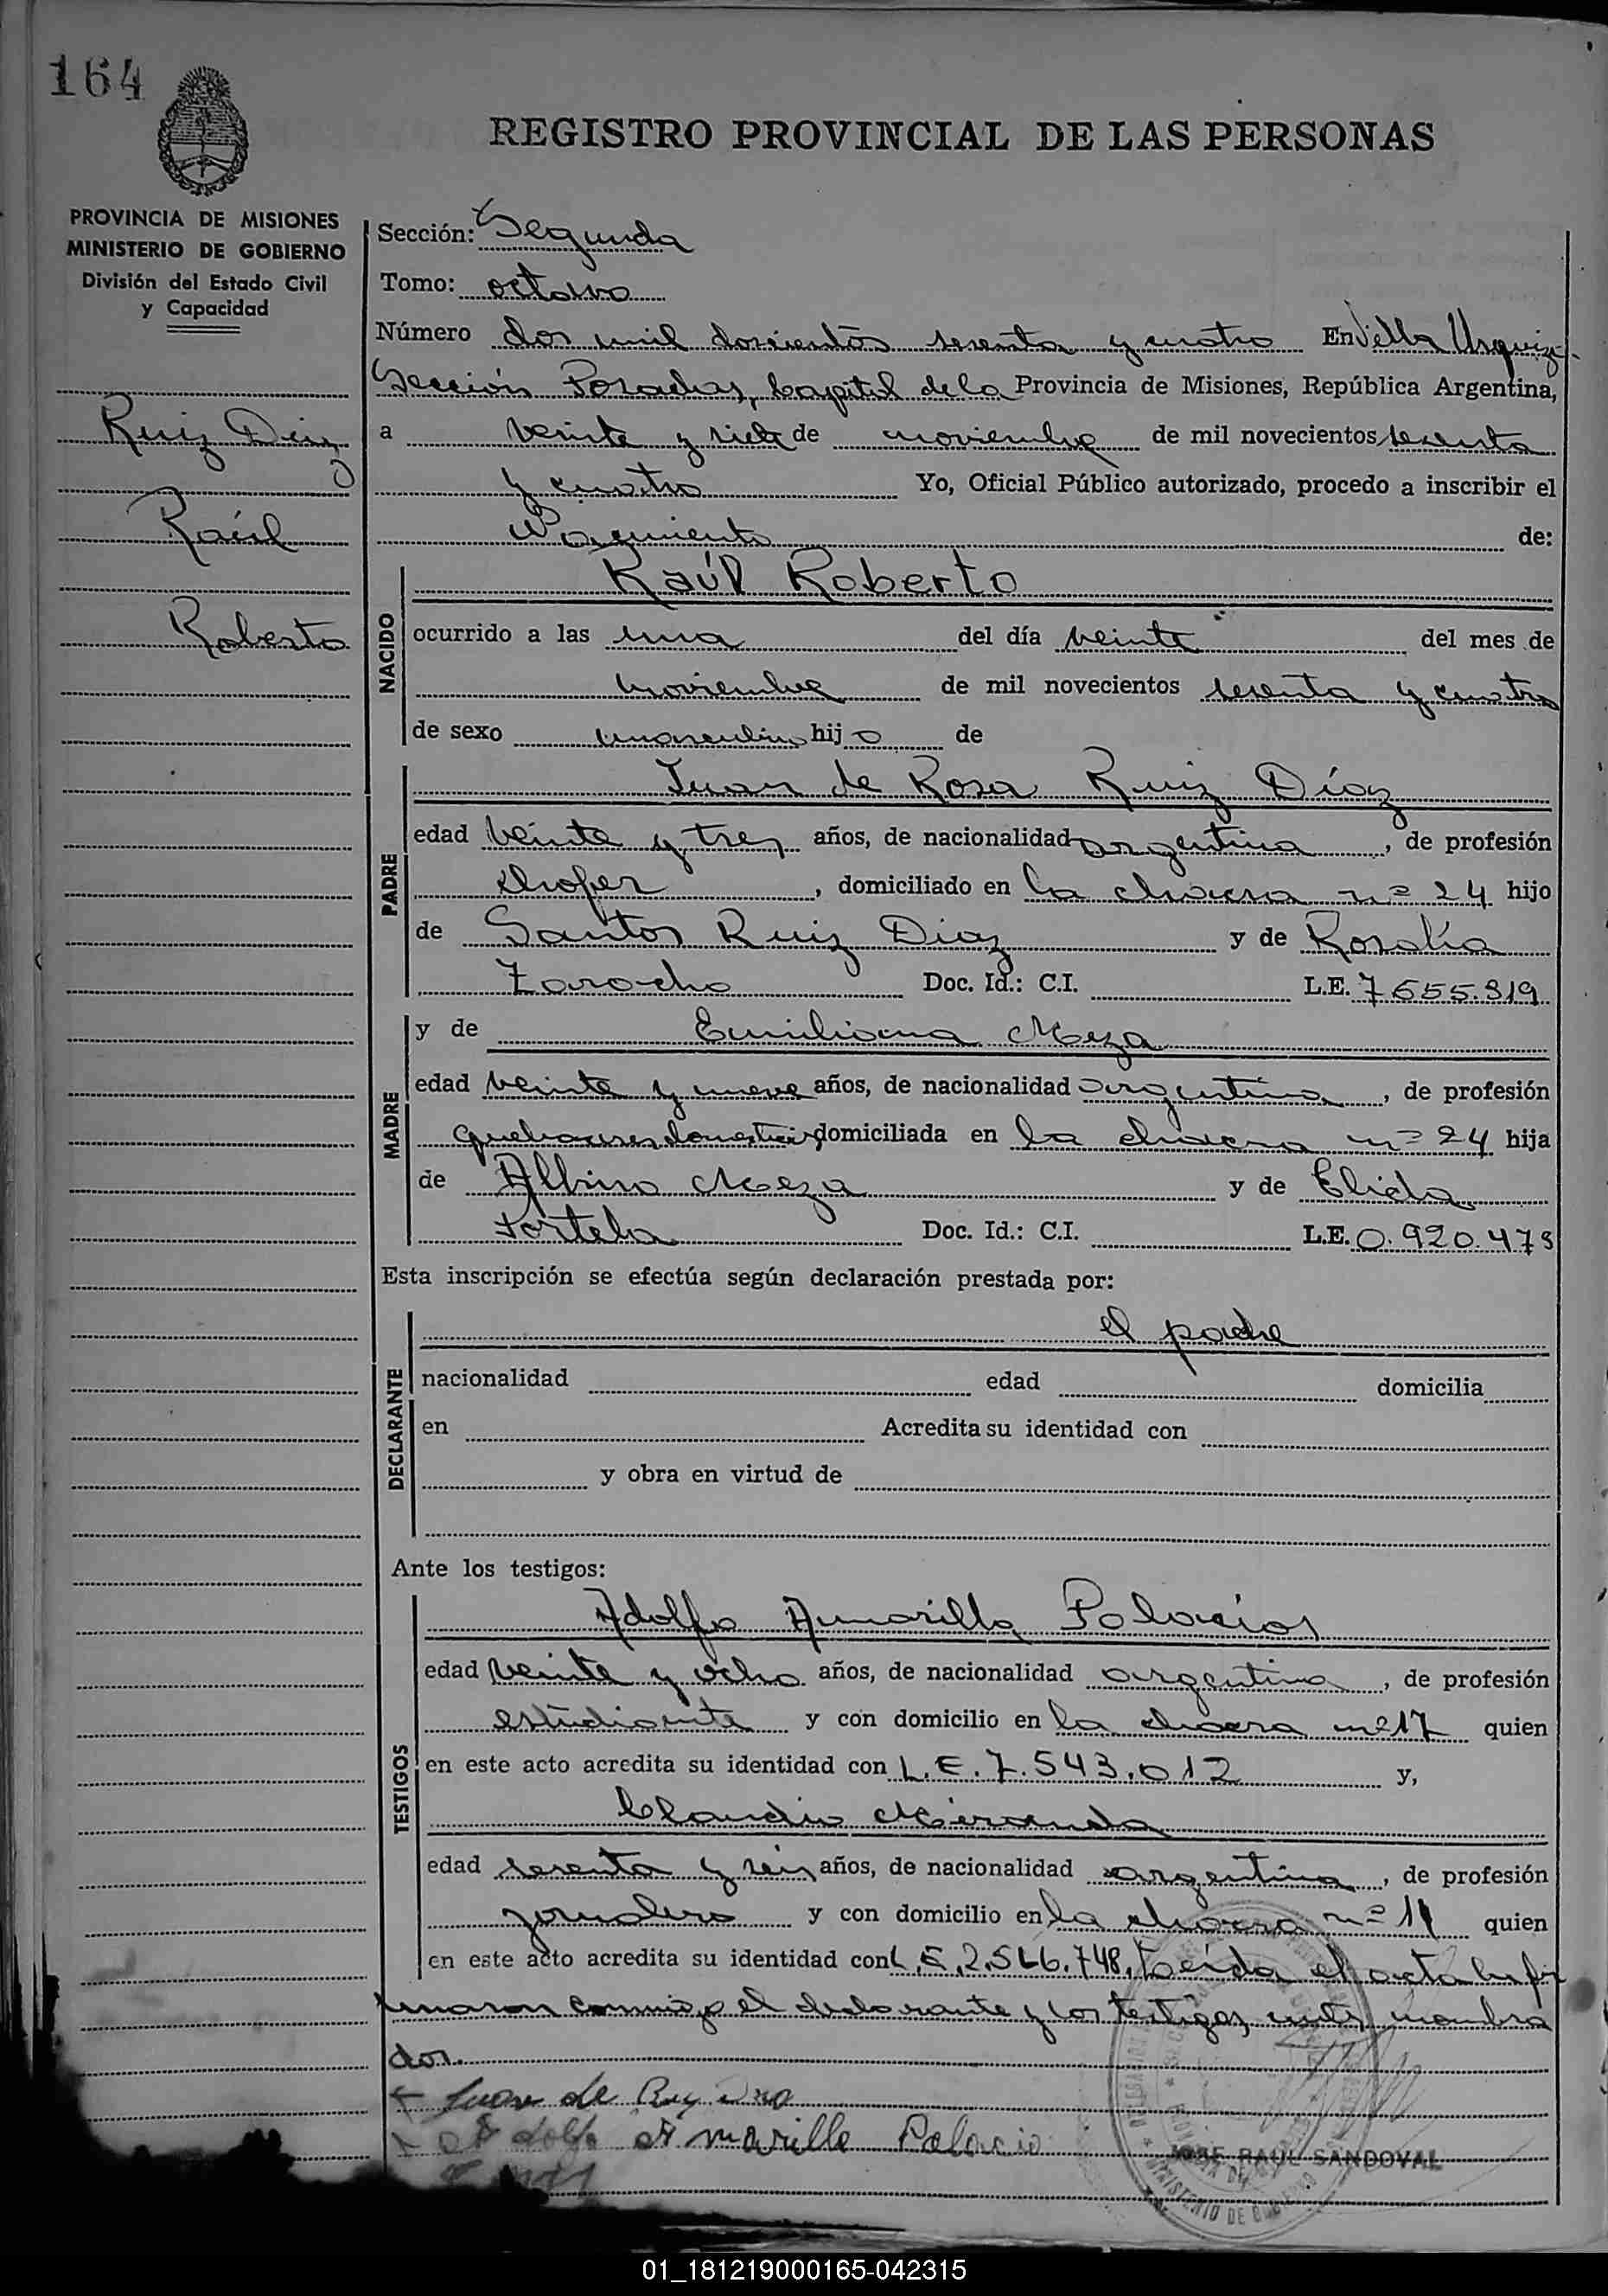 164
REGISTRO PROVINCIAL DE LAS PERSONAS
PROVINCIA DE MISIONES
MINISTERIO DE GOBIERNO
División del Estado Civil
y Capacidad
Ruiz Diaz
Raúl
Roberto
Sección: Segunda
Tomo: octavo
Número dos mil doscientos sesenta y cuatro En Villa Urquiza
Sección Posadas, Capital de la Provincia de Misiones, República Argentina,
a veinte y siete de noviembre de mil novecientos sesenta
y cuatro Yo, Oficial Público autorizado, procedo a inscribir el
Nacimiento de:
NACIDO
Raúl Roberto
ocurrido a las una del día veinte del mes de
noviembre de mil novecientos sesenta y cuatro
de sexo masculino hijo de
PADRE
Juan de Rosa Ruiz Díaz
edad veinte y tres años, de nacionalidad argentina, de profesión
chofer, domiciliado en la chacra nº 24 hijo
de Santos Ruiz Diaz y de Rosalía
Zarocho Doc. Id.: C.I. L.E. 7.655.319
MADRE
y de Emiliana Meza
edad veinte y nueve años, de nacionalidad argentina, de profesión
quehaceres domesticos domiciliada en la chacra nº 24 hija
de Albino Meza y de Elida
Portela Doc. Id.: C.I. L.E. 0.920.473
Esta inscripción se efectúa según declaración prestada por:
DECLARANTE
el padre
nacionalidad edad domicilia
en Acredita su identidad con
y obra en virtud de
Ante los testigos:
TESTIGOS
Adolfo Amarilla Palacios
edad veinte y ocho años, de nacionalidad argentina, de profesión
estudiante y con domicilio en la chacra nº 17 quien
en este acto acredita su identidad con L.E. 7.543.012 y,
Claudio Miranda
edad sesenta y seis años, de nacionalidad argentina, de profesión
jornalero y con domicilio en la chacra nº 11 quien
en este acto acredita su identidad con L.E. 2.566.748, Leída el acta la fir
maron conmigo el declarante y los testigos ante nombra
dos.
Juan de Ruiz
Adolfo Amarilla Palacio
JOSE RAUL SANDOVAL
MINISTERIO DE GOBIERNO
01_181219000165-042315